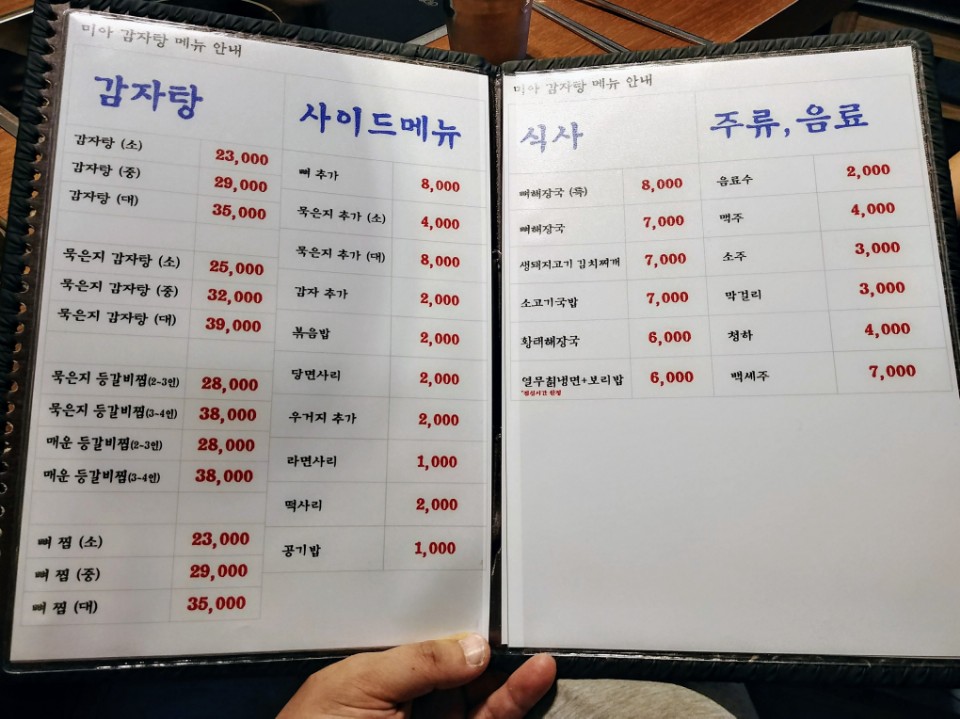 미아 감자탕 메뉴 안내
감자탕
감자탕 (소) 23,000
감자탕 (중) 29,000
감자탕 (대) 35,000
묵은지 감자탕 (소) 25,000
묵은지 감자탕 (중) 32,000
묵은지 감자탕 (대) 39,000
묵은지 등갈비찜(2~3인) 28,000
묵은지 등갈비찜(3~4인) 38,000
매운 등갈비찜(2~3인) 28,000
매운 등갈비찜(3~4인) 38,000
뼈 찜 (소) 23,000
뼈 찜 (중) 29,000
뼈 찜 (대) 35,000
사이드메뉴
뼈 추가 8,000
묵은지 추가 (소) 4,000
묵은지 추가 (대) 8,000
감자 추가 2,000
볶음밥 2,000
당면사리 2,000
우거지 추가 2,000
라면사리 1,000
떡사리 2,000
공기밥 1,000
미아 감자탕 메뉴 안내
식사
뼈해장국 (특) 8,000
뼈해장국 7,000
생돼지고기 김치찌개 7,000
소고기국밥 7,000
황태해장국 6,000
열무칡냉면+보리밥 6,000
주류, 음료
음료수 2,000
맥주 4,000
소주 3,000
막걸리 3,000
청하 4,000
백세주 7,000